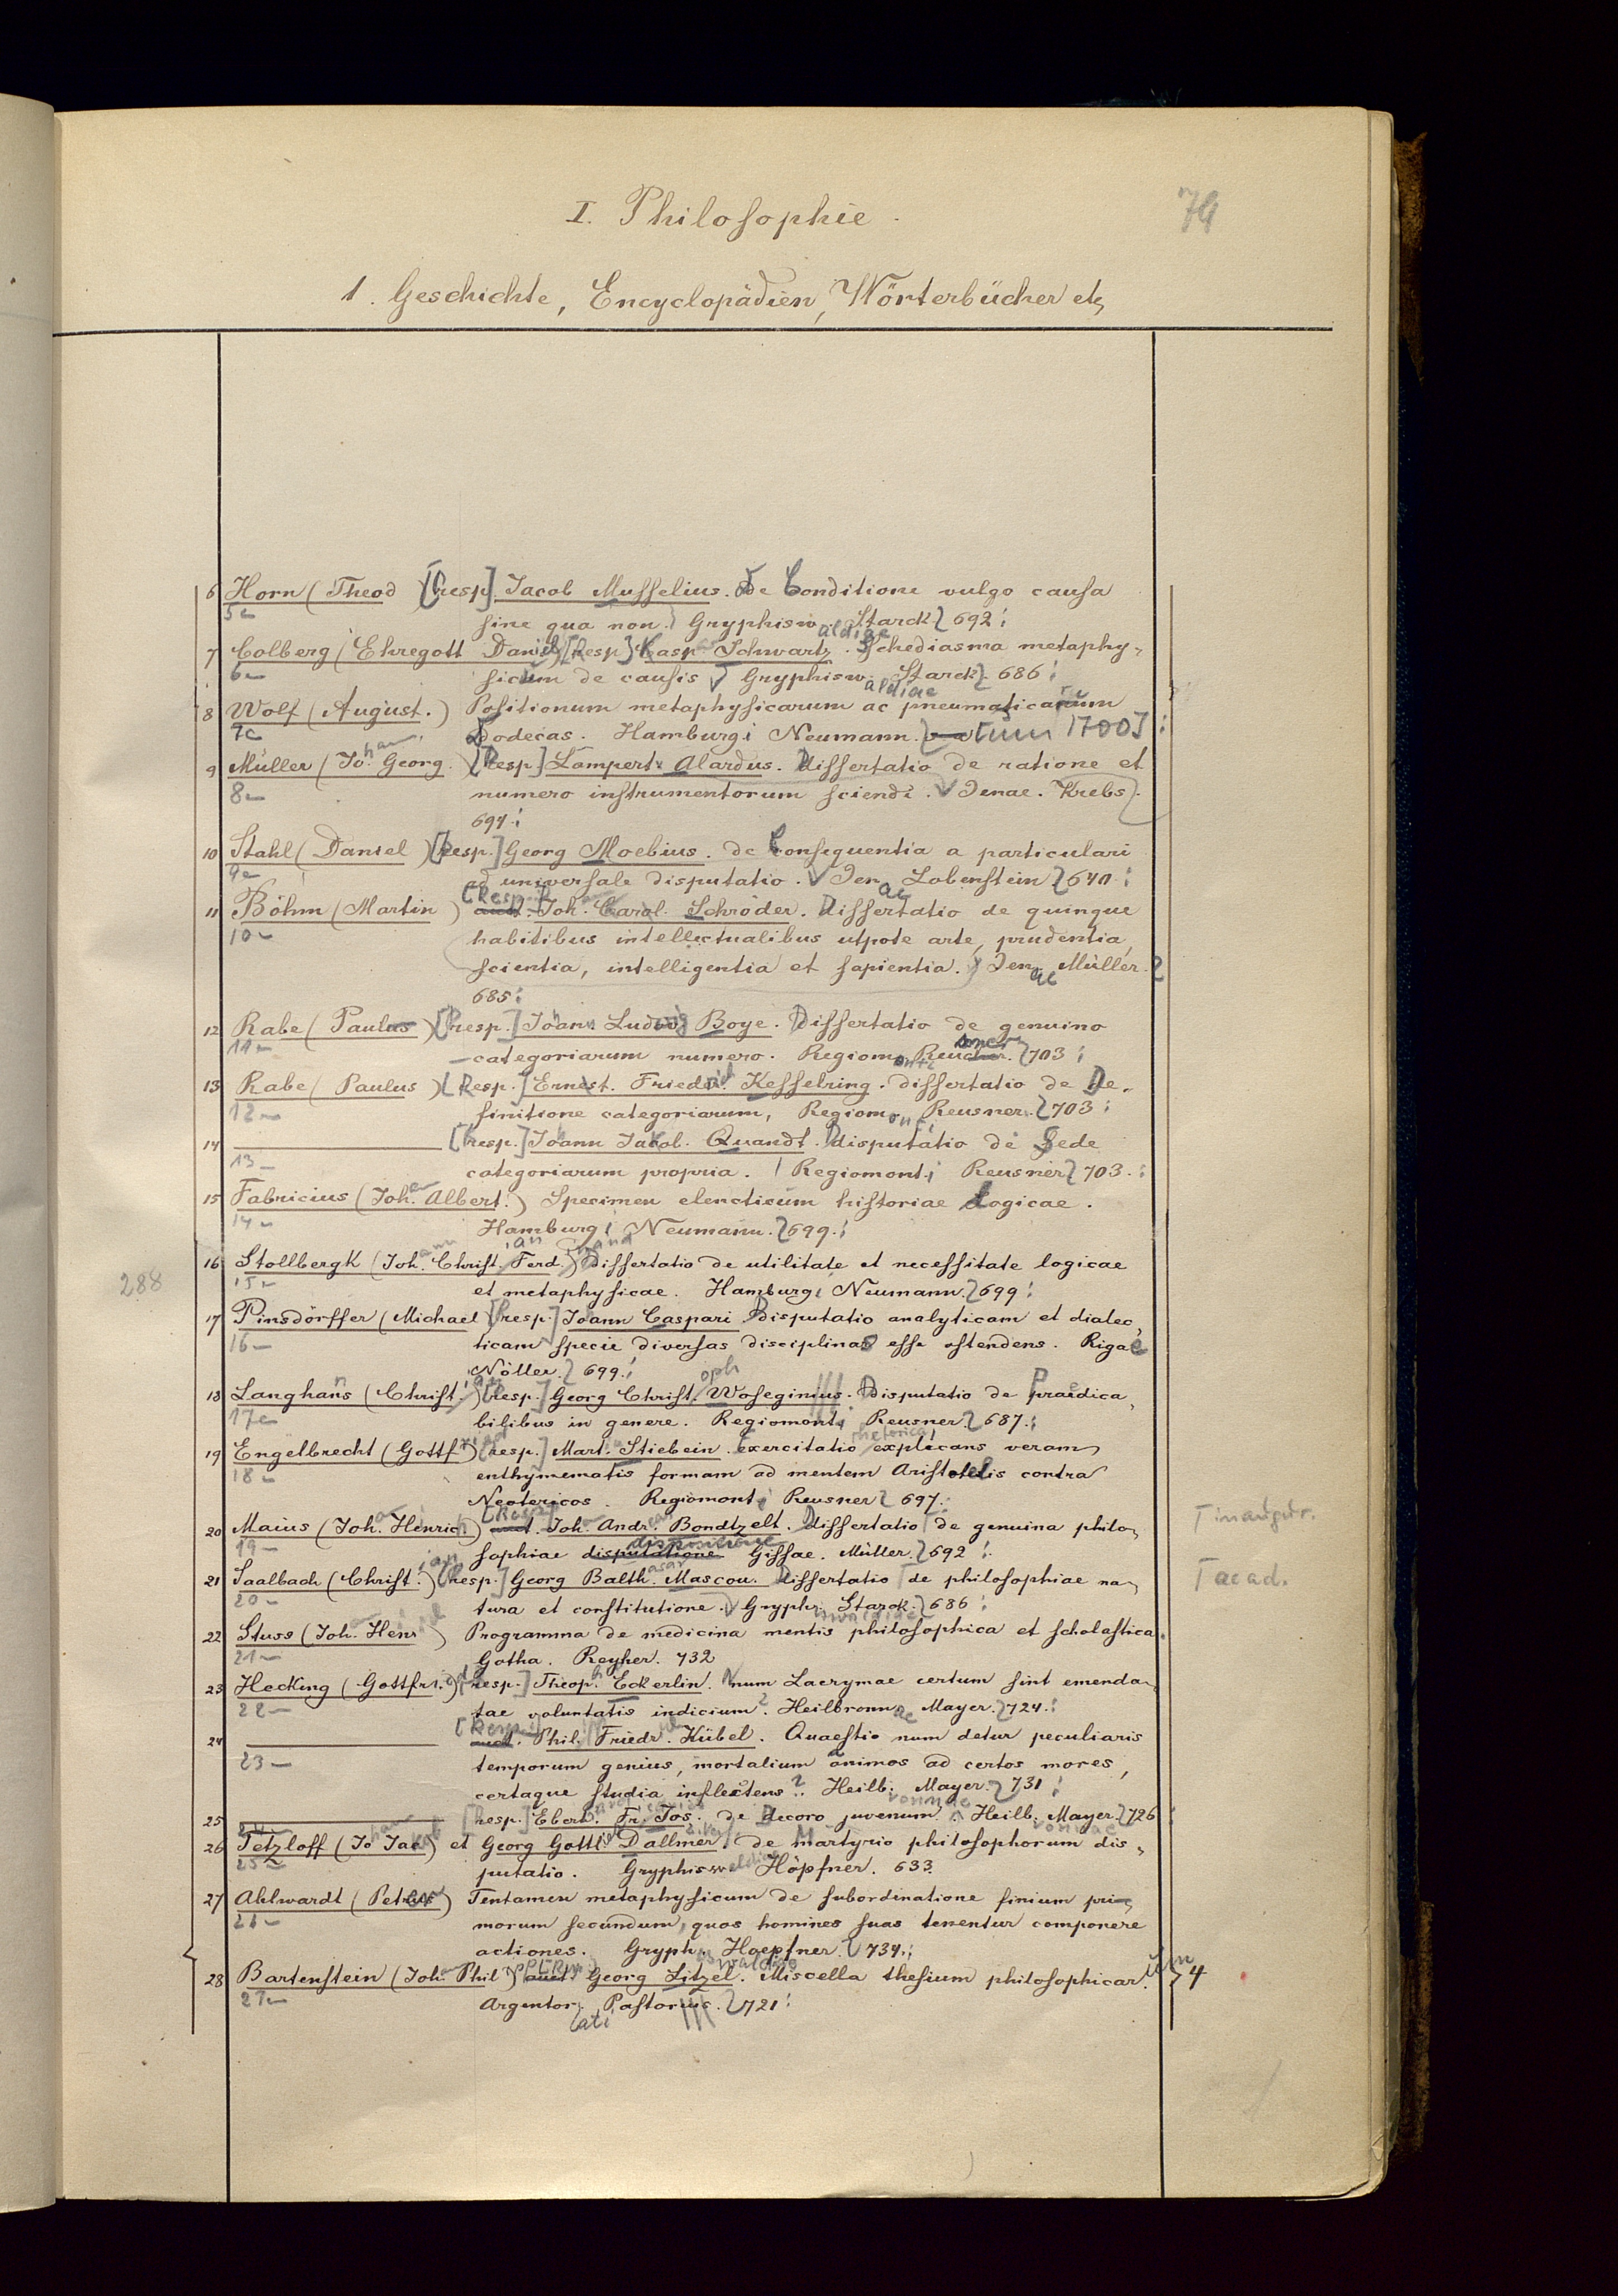 I. Philosophie.
79
1. Geschichte, Encyclopädien, Wörterbücher etc
6 Horn (Theod) [Resp.] Jacob Musselius. De Conditione vulgo causa
5
sine qua non. Gryphiswaldiae Starck 692.
7 Colberg (Ehregott Daniel) [Resp.] Kasp. Schwartz. Schediasma metaphy-
6
sicum de causis Gryphiswaldiae Starck 686
8 Wolf (August.) Positionum metaphysicarum ac pneumaticarum
7
Dodecas. Hamburgi Neumann. [um 1700]
9 Müller (Johan. Georg.) [Resp.] Lampert. Alardus. Dissertatio de ratione et
8
numero instrumentorum sciendi. Jenae. Krebs.
694.
10 Stahl (Daniel) [Resp.] Georg Moebius. de Consequentia a particulari
9
ad universale disputatio. Jenae Lobenstein 640.
11 Böhm (Martin) [Resp.] Joh. Carol. Schröder. Dissertatio de quinque
10
habitibus intellectualibus utpote arte, prudentia,
scientia, intelligentia et sapientia. Jenae Müller.
685.
12 Rabe (Paulus) [Resp.] Johann Ludwig Boye. Dissertatio de genuino
11
categoriarum numero. Regiomonti Reusner. 703
13 Rabe (Paulus) [Resp.] Ernest. Friedrich Kesselring. dissertatio de De-
12
finitione categoriarum, Regiomonti Reusner. 703
14 [Resp.] Johann Jakob. Quandt. Disputatio de Sede
13
categoriarum propria. Regiomonti Reusner 703.
15 Fabricius (Joh. Albert.) Specimen elencticum historiae Logicae.
14
Hamburgi Neumann. 699.
16 Stollbergk (Johann Christian Ferdinand) dissertatio de utilitate et necessitate logicae
288
15
et metaphysicae. Hamburgi Neumann. 699
17 Pinsdörffer (Michael) [Resp.] Johann Caspari Disputatio analyticam et dialec-
16
ticam specie diversas disciplinas esse ostendens. Rigae
Nöller. 699.
18 Langhans (Christian) [Resp.] Georg Christoph Woseginius. Disputatio de Praedica-
17
bilibus in genere. Regiomonti Reusner. 687.
19 Engelbrecht (Gottfr.) [Resp.] Mart. Stiebein. Exercitatio rhetorica explicans veram
18
enthymematis formam ad mentem Aristotelis contra
Neotericos. Regiomonti Reusner 697.
20 Maius (Joh. Henrich) [Resp.] Joh. Andr. Bondtzelt. Dissertatio de genuina philo-
T inaugur.
19
sophiae disputatione dispositione Gissae. Müller. 692
21 Saalbach (Christian) [Resp.] Georg Balthasar Mascou. Dissertatio de philosophiae na-
T acad.
20
tura et constitutione. Gryphiswaldiae Starck. 686
22 Stuss (Joh. Henr) Programma de medicina mentis philosophica et scholastica.
21
Gotha. Reyher. 732
23 Hecking (Gottfried) [Resp.] Theoph. Eckerlin. Num Lacrymae certum sint emenda-
22
tae voluntatis indicium? Heilbronnae Mayer. 724.
24 [Resp.] Phil. Friedr. Kübel. Quaestio num detur peculiaris
23
temporum genius, mortalium animos ad certos mores,
certaque studia inflectens? Heilb. Mayer. 731
25 [Resp.] Eberh. Fr. Jos. de decoro juvenum. Heilb. Mayer. 726
24
26 Tetzloff (Jo Jac) et Georg Gottl. Dallmer. de martyrio philosophorum dis-
25
putatio. Gryphiswaldiae Höpfner. 633.
27 Ahlwardt (Peter) Tentamen metaphysicum de subordinatione finium pri-
26
morum secundum, quos homines suas tenentur componere
actiones. Gryphiswaldiae Hoepfner. 734.
28 Bartenstein (Joh. Phil) Georg Litzel. Miscella thesium philosophicarum 4
27
Argentorati Pastorius. 721